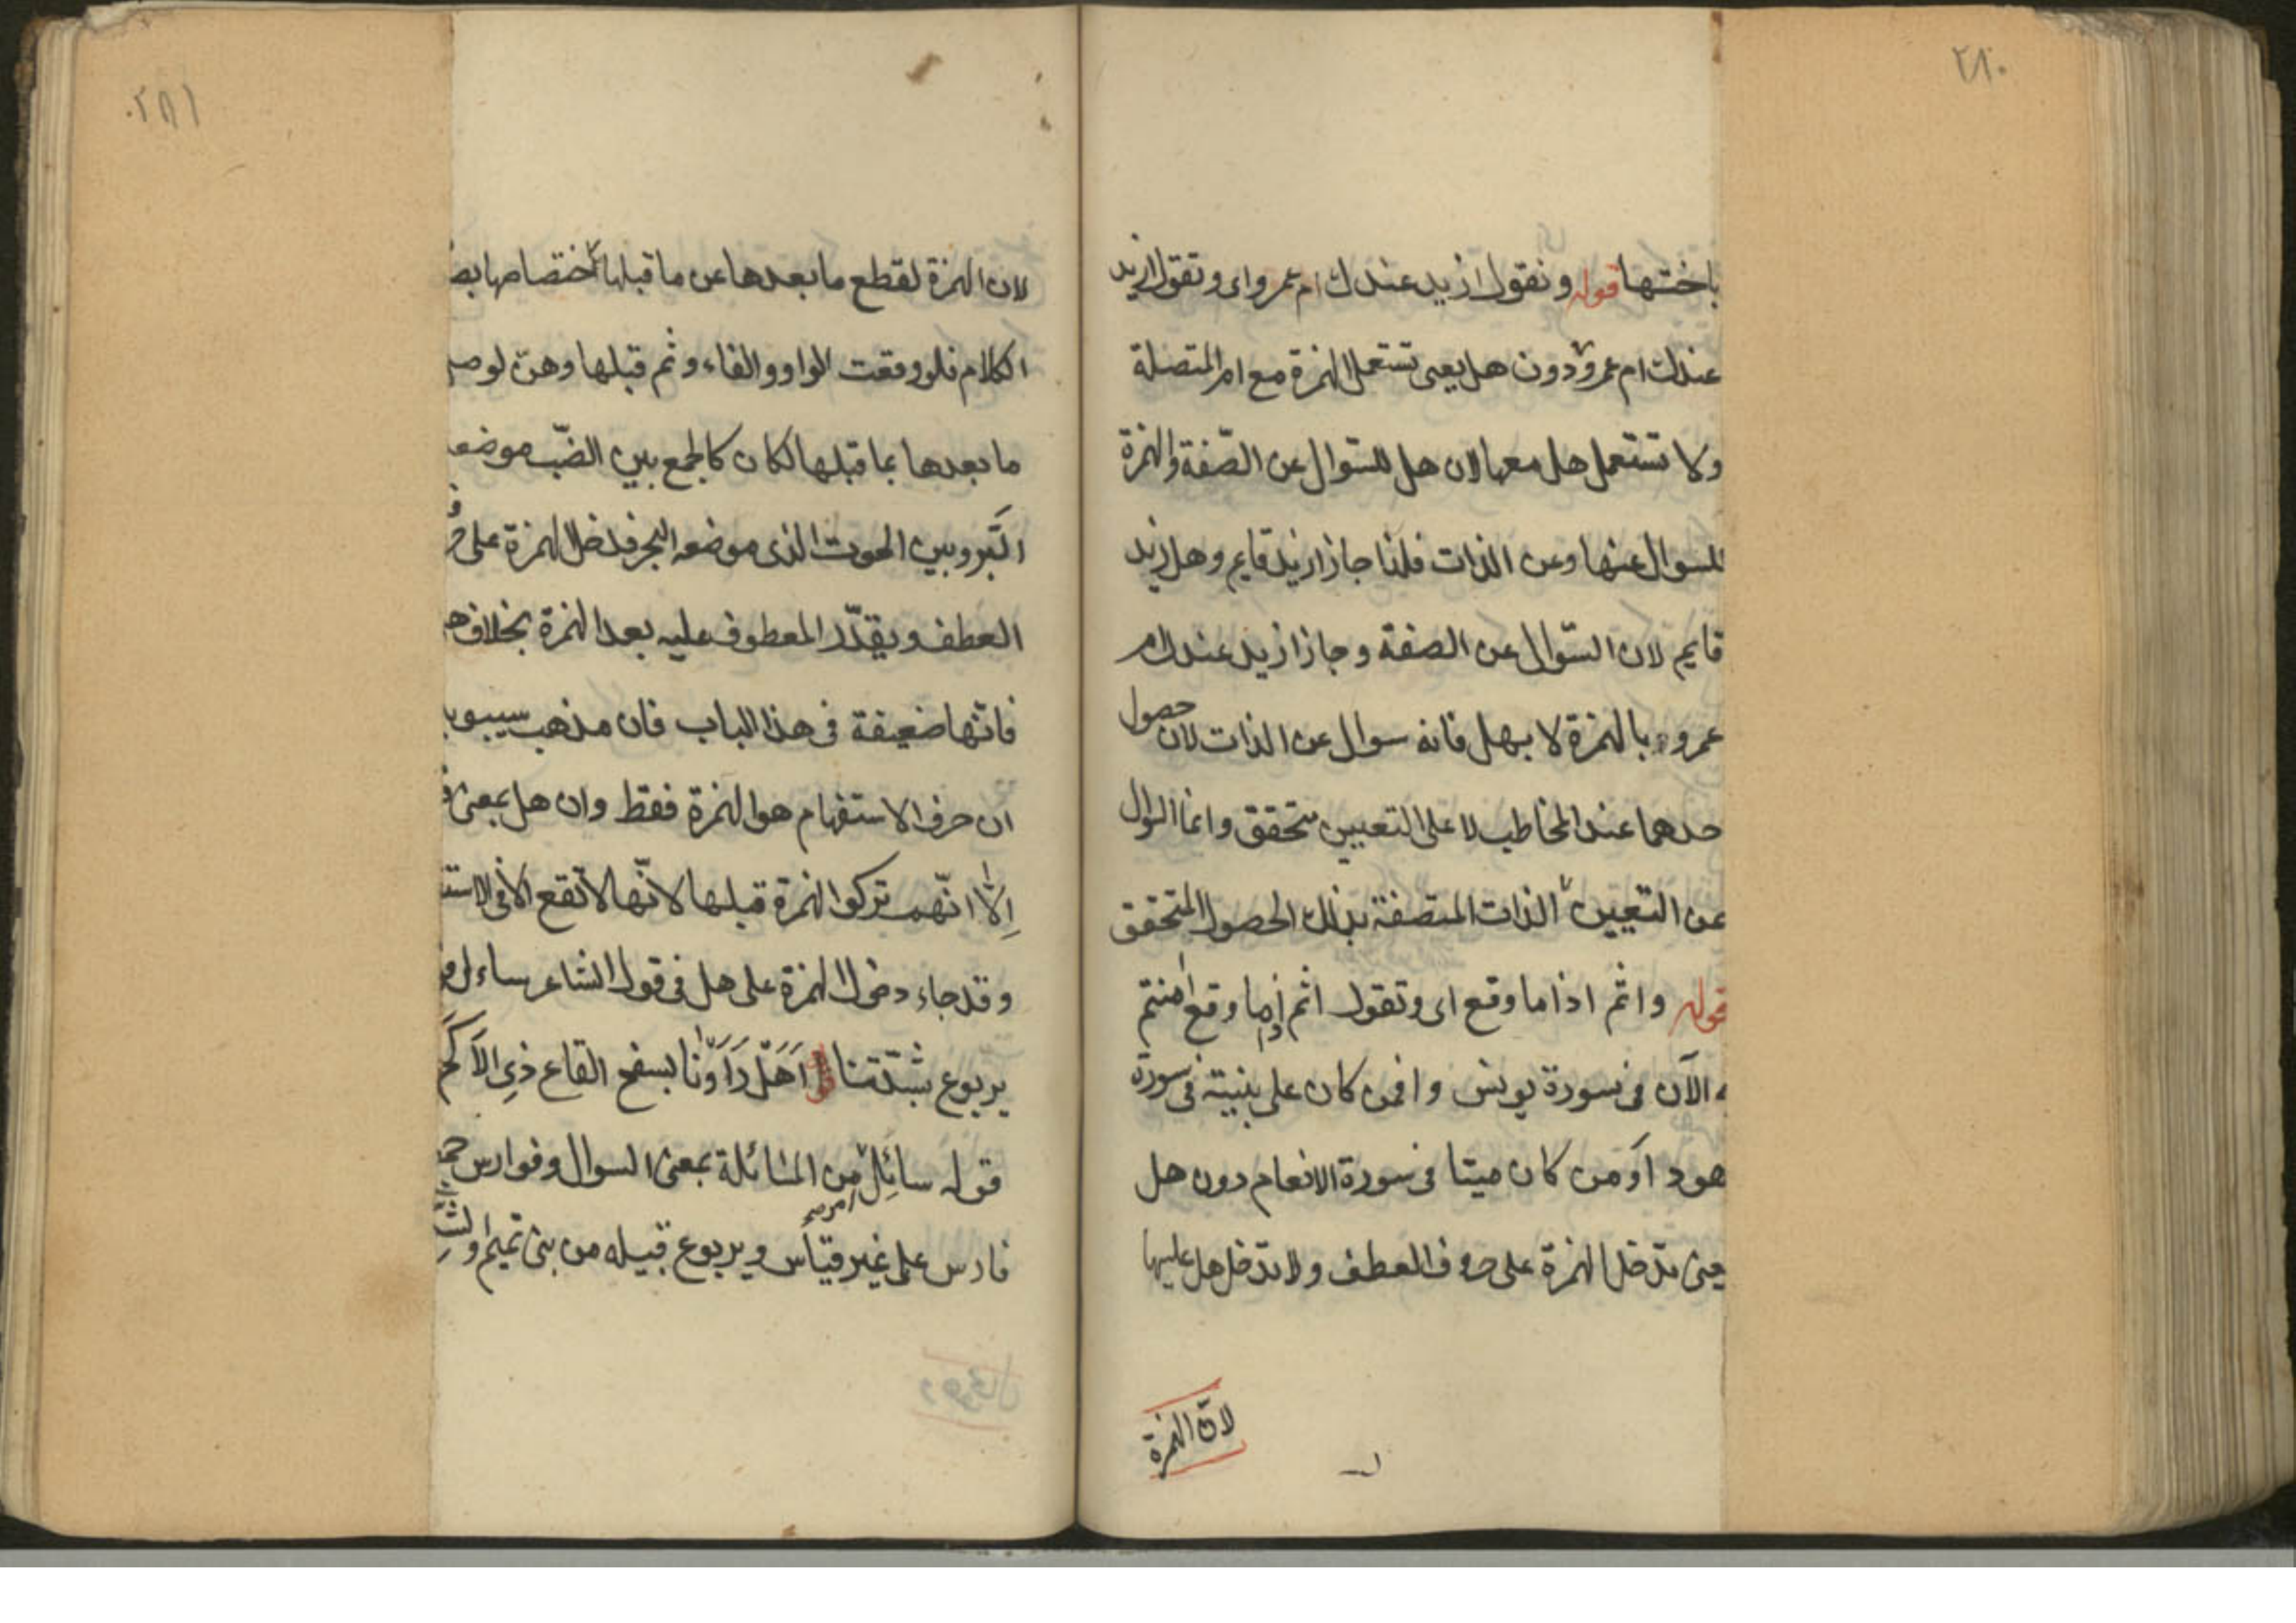 ٢٨٠
باختها قوله ونقول ازيد عندك ام عمرو اى وتقول ازيد
عندك ام عمرو دون هل يعنى تستعمل الهمزة مع ام المتصلة
ولا تستعمل هل معها لان هل للسّوال عن الصّفة والهمزة
للسوال عنها وعن الذات فلذا جاز ازيد قايم وهل زيد
قايم لان السّوال عن الصفة وجاز ازيد عندك ام
عمرو بالهمزة لا بهل فانه سوال عن الذات لان حصول
حدهما عند المخاطب لا على التعيين متحقق وانما السوال
عن التعيين الذات المتصفة بذلك الحصول المتحقق
قوله واثم اذا ما وقع اى وتقول اثم اذا ما وقع امنتم
به الآن فى سورة يونس وافمن كان على بنيتة فى سورة
هود أو من كان ميتا فى سورة الانعام دون هل
يعنى تدخل الهمزة على حروف العطف ولا تدخل هل عليها
لانّ الهمزة
٢٨١
لان الهمزة لقطع ما بعدها عن ما قبلها لاختصاصها بصد
الكلام فلو وقعت الواو والفاء وثم قبلها وهنّ لوصل
ما بعدها بما قبلها لكان كالجمع بين الضّب موضعه
البَّر وبين الحوت الذى موضعه البحر فدخل الهمزة على
العطف ويقدّر المعطوف عليه بعد الهمزة بخلاف هل
فانّها ضعيفة فى هذا الباب فان مذهب سيبويه
ان حرف الاستفهام هو الهمزة فقط وان هل بمعنى
اِلّا انّهم تركوا الهمزة قبلها لانّها لا تقع الا فى الاستف
وقد جاء دخول الهمزة على هل فى قول الشاعر ساءل
يربوع بشدّتنا اَهَلْ رَاَوْنا بسفح القاع ذِى الاَكَم
قوله سائِل من المسَائلة بمعنى السوال وفوارس جمع
فارس على غير قياس ويربوع قبيله من بنى تميم